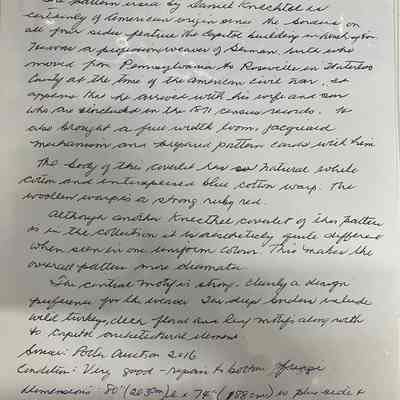 The pattern used by Daniel Knechtel is
certainly of American origin since the borders on
all four sides feature the Capitol building in Washington
He was a profession weaver of German birth who
moved from Pennsylvania to Roseville in Waterloo
County at the time of the American Civil War, it
appears that he arrived with his wife and son
who are included in the 1871 census records. He
also brought a full width loom, jacquard
mechanism and prepared pattern cards with him
The body of this coverlet has natural white
cotton and interspersed blue cotton warp. The
woollen warp is a strong ruby red.
Although another Knechtel coverlet of this pattern
is in the collection it is aesthetically quite different
when seen in one uniform colour. This makes the
overall pattern more dramatic
The central motif is strong. Clearly a design
preference for the weaver The deep borders include
wild turkeys, deer floral and leaf motifs along with
the Capitol architectural element
Source: Auction 2016
Condition: Very good - repairs to bottom fringe
Dimensions: 80" (203cm) L x 74" (188cm) w plus side &